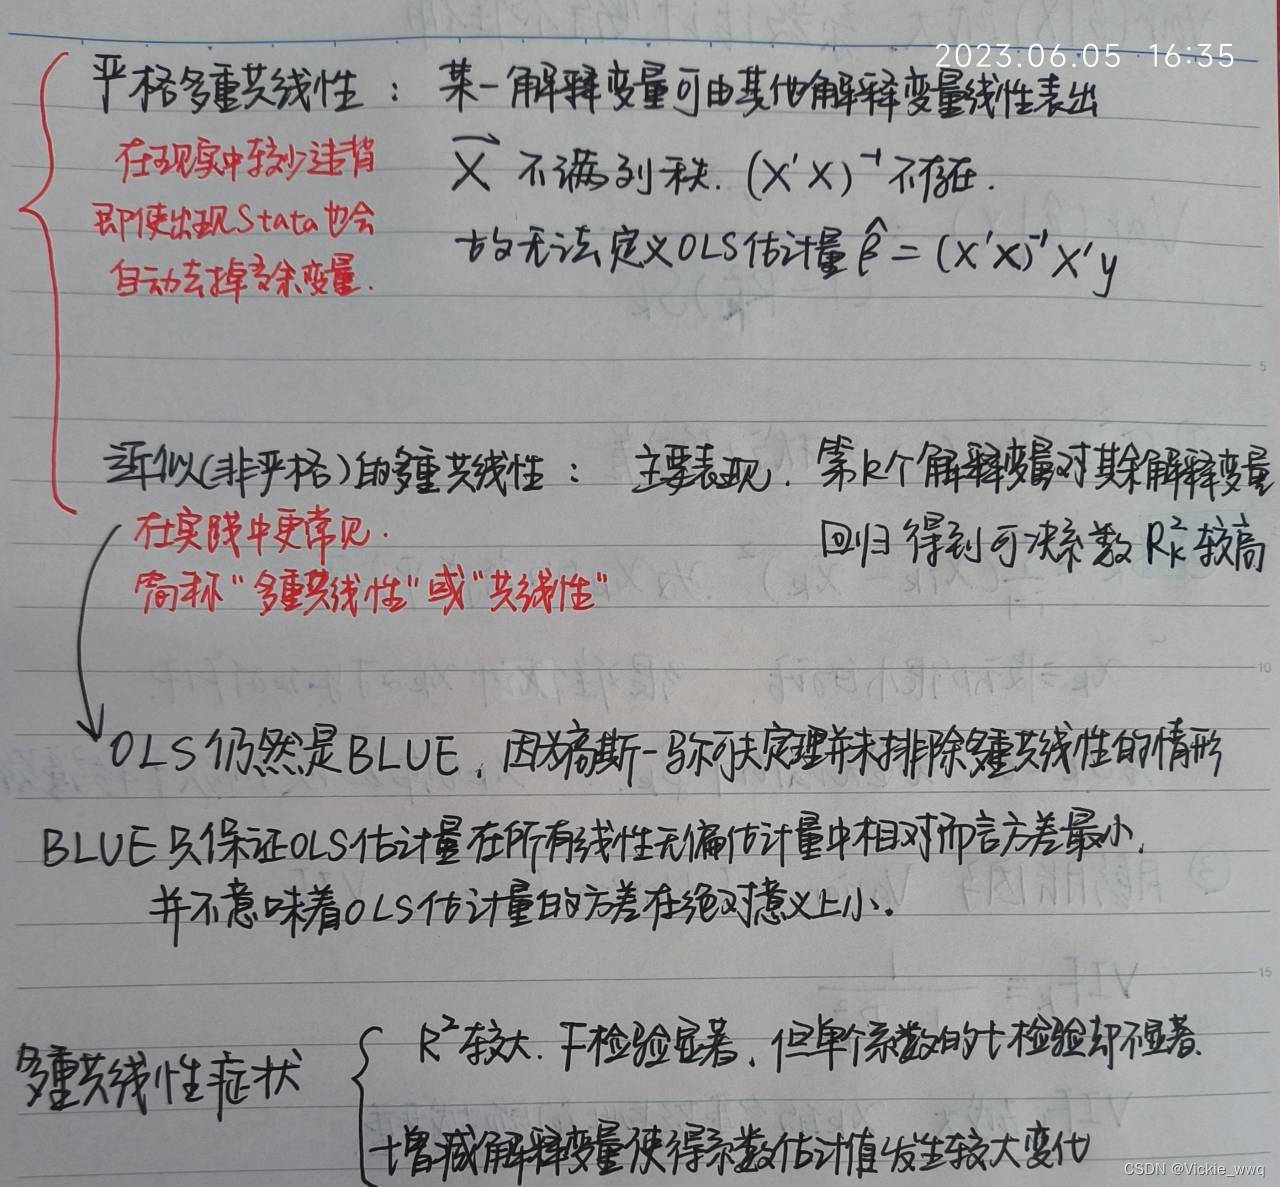 2023.06.05 16:35
严格多重共线性: 某一解释变量可由其他解释变量线性表出
在现实中较少违背
X 不满列秩. (X'X)⁻¹不存在.
即使出现Stata也会
故无法定义OLS估计量 β̂ = (X'X)⁻¹X'y
自动去掉多余变量.
近似(非严格)的多重共线性: 主要表现. 第k个解释变量对其余解释变量
在实践中更常见.
回归得到可决系数 R²ₖ较高
简称"多重共线性"或"共线性"
OLS仍然是BLUE, 因为高斯-马尔可夫定理并未排除多重共线性的情形
BLUE只保证OLS估计量在所有线性无偏估计量中相对而言方差最小,
并不意味着OLS估计量的方差在绝对意义上小.
多重共线性症状
R²较大. F检验显著, 但单个系数的t检验却不显著.
增减解释变量使得系数估计值发生较大变化
5
10
15
CSDN @Vickie_wwq